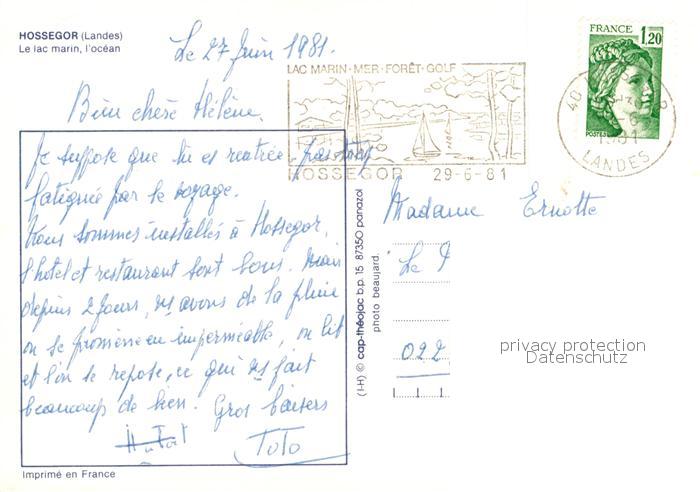 HOSSEGOR (Landes)
Le lac marin, l'océan
Le 27 Juin 1981.
FRANCE 1,20
LAC MARIN·MER·FORÊT·GOLF
POSTES
LANDES
1981
HOSSEGOR 29-6-81
Bien chère Hélène,
Je suppose que tu es rentrée, pas trop
fatiguée par le voyage.
Nous sommes installés à Hossegor,
l'hôtel et restaurant sont bons. Mais
depuis 2 jours, ns avons de la pluie
on se promène en imperméable, on lit
et l'on se repose, ce qui ns fait
beaucoup de bien. Gros baisers
Toto
Madame Ernotte
Le
022
(I-H) © cap-théojac b.p. 15 87350 panazol
photo beaujard.
privacy protection
Datenschutz
Imprimé en France